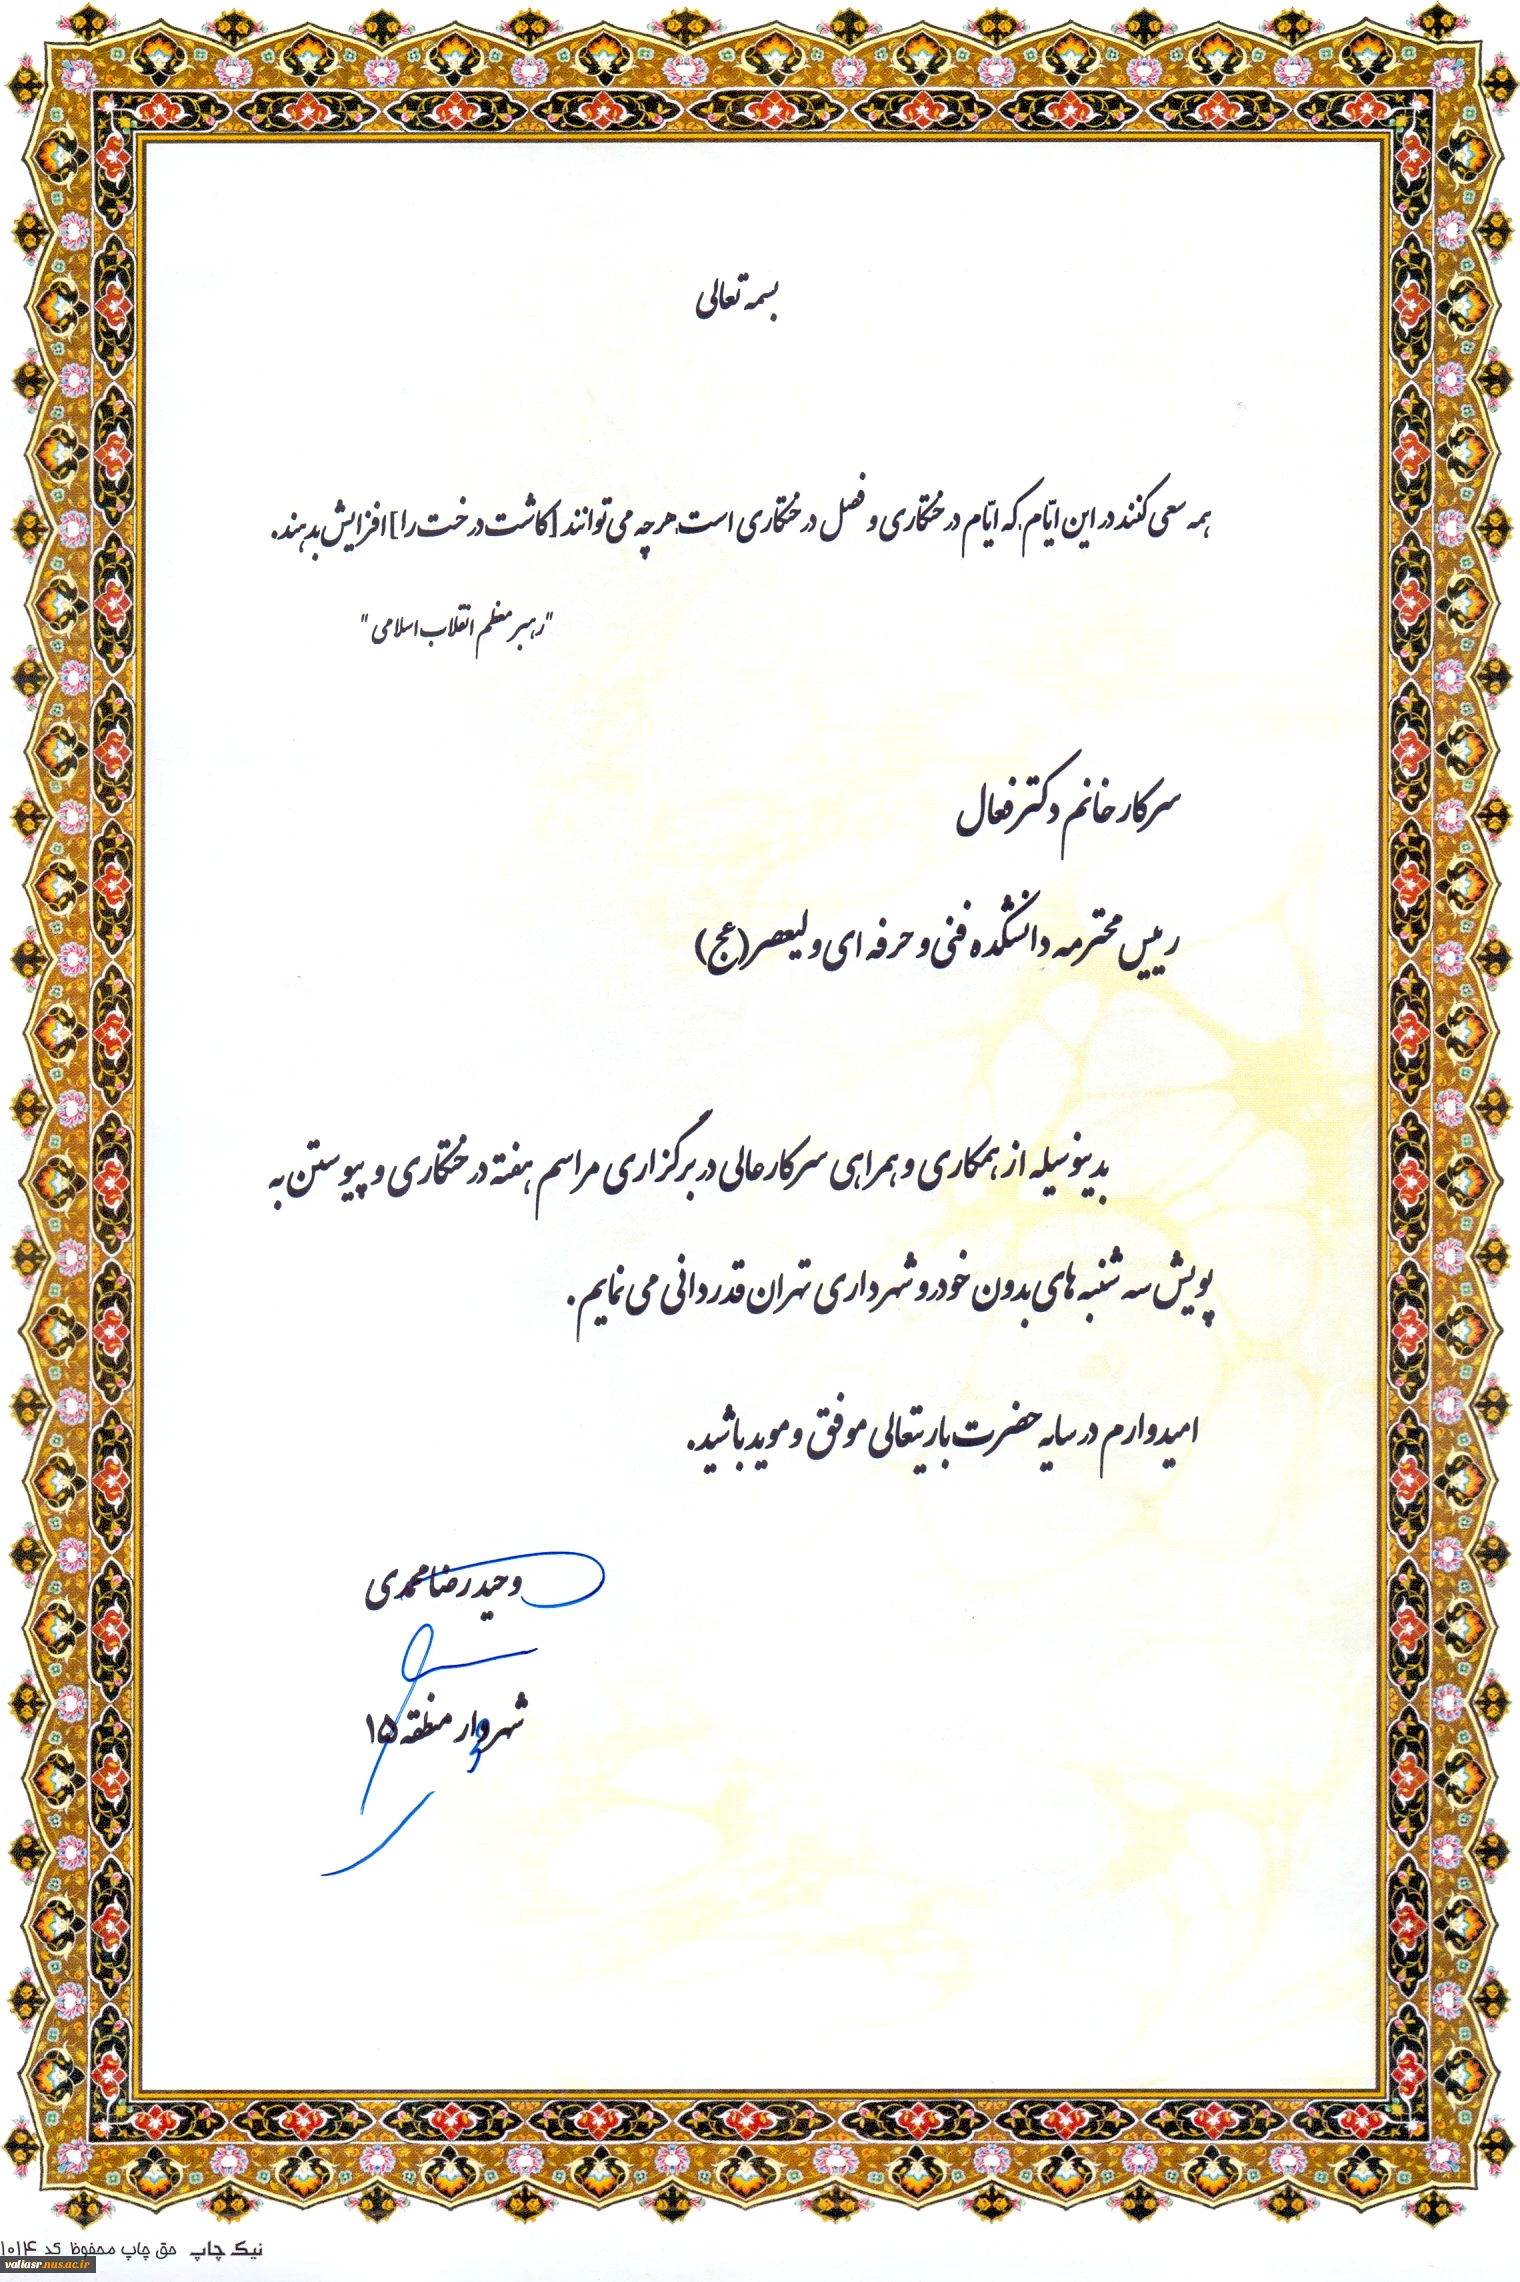 بسمه تعالی
همه سعی کنند در این ایّام که ایّام درختکاری و فصل درختکاری است هر چه می توانند [کاشت درخت را] افزایش بدهند.
"رهبر معظم انقلاب اسلامی"
سرکار خانم دکتر فعال
رییس محترمه دانشکده فنی و حرفه ای ولیعصر(عج)
بدینوسیله از همکاری و همراهی سرکار عالی در برگزاری مراسم هفته درختکاری و پیوستن به
پویش سه شنبه های بدون خودرو شهرداری تهران قدردانی می نمایم.
امیدوارم در سایه حضرت باریتعالی موفق و موید باشید.
وحید رضا محمدی
شهردار منطقه ۱۵
نیک چاپ حق چاپ محفوظ کد ۱۰۱۴
valiasr.nus.ac.ir